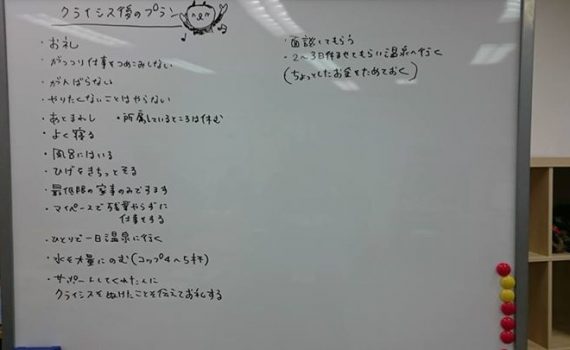 クライシス後のプラン
・お礼
・がっつり仕事をつめこみしない
・がんばらない
・やりたくないことはやらない
・あとまわし ・所属しているところは休む
・よく寝る
・風呂にはいる
・ひげをきちっとそる
・最低限の家事のみですます
・マイペースで残業やらずに
仕事をする
・ひとりで一日温泉に行く
・水を大量にのむ(コップ4〜5杯)
・サポートしてくれた人に
クライシスをぬけたことを伝えてお礼する
・面談してもらう
・2〜3日休ませてもらい温泉へ行く
(ちょっとしたお金をためておく)